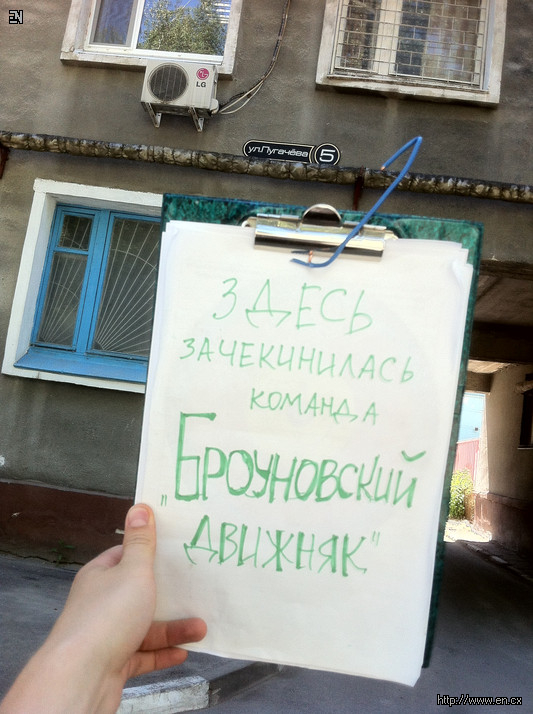 EN
LG
ул.Пугачёва 5
ЗДЕСЬ
ЗАЧЕКИНИЛАСЬ
КОМАНДА
„БРОУНОВСКИЙ
ДВИЖНЯК"
http://www.en.cx